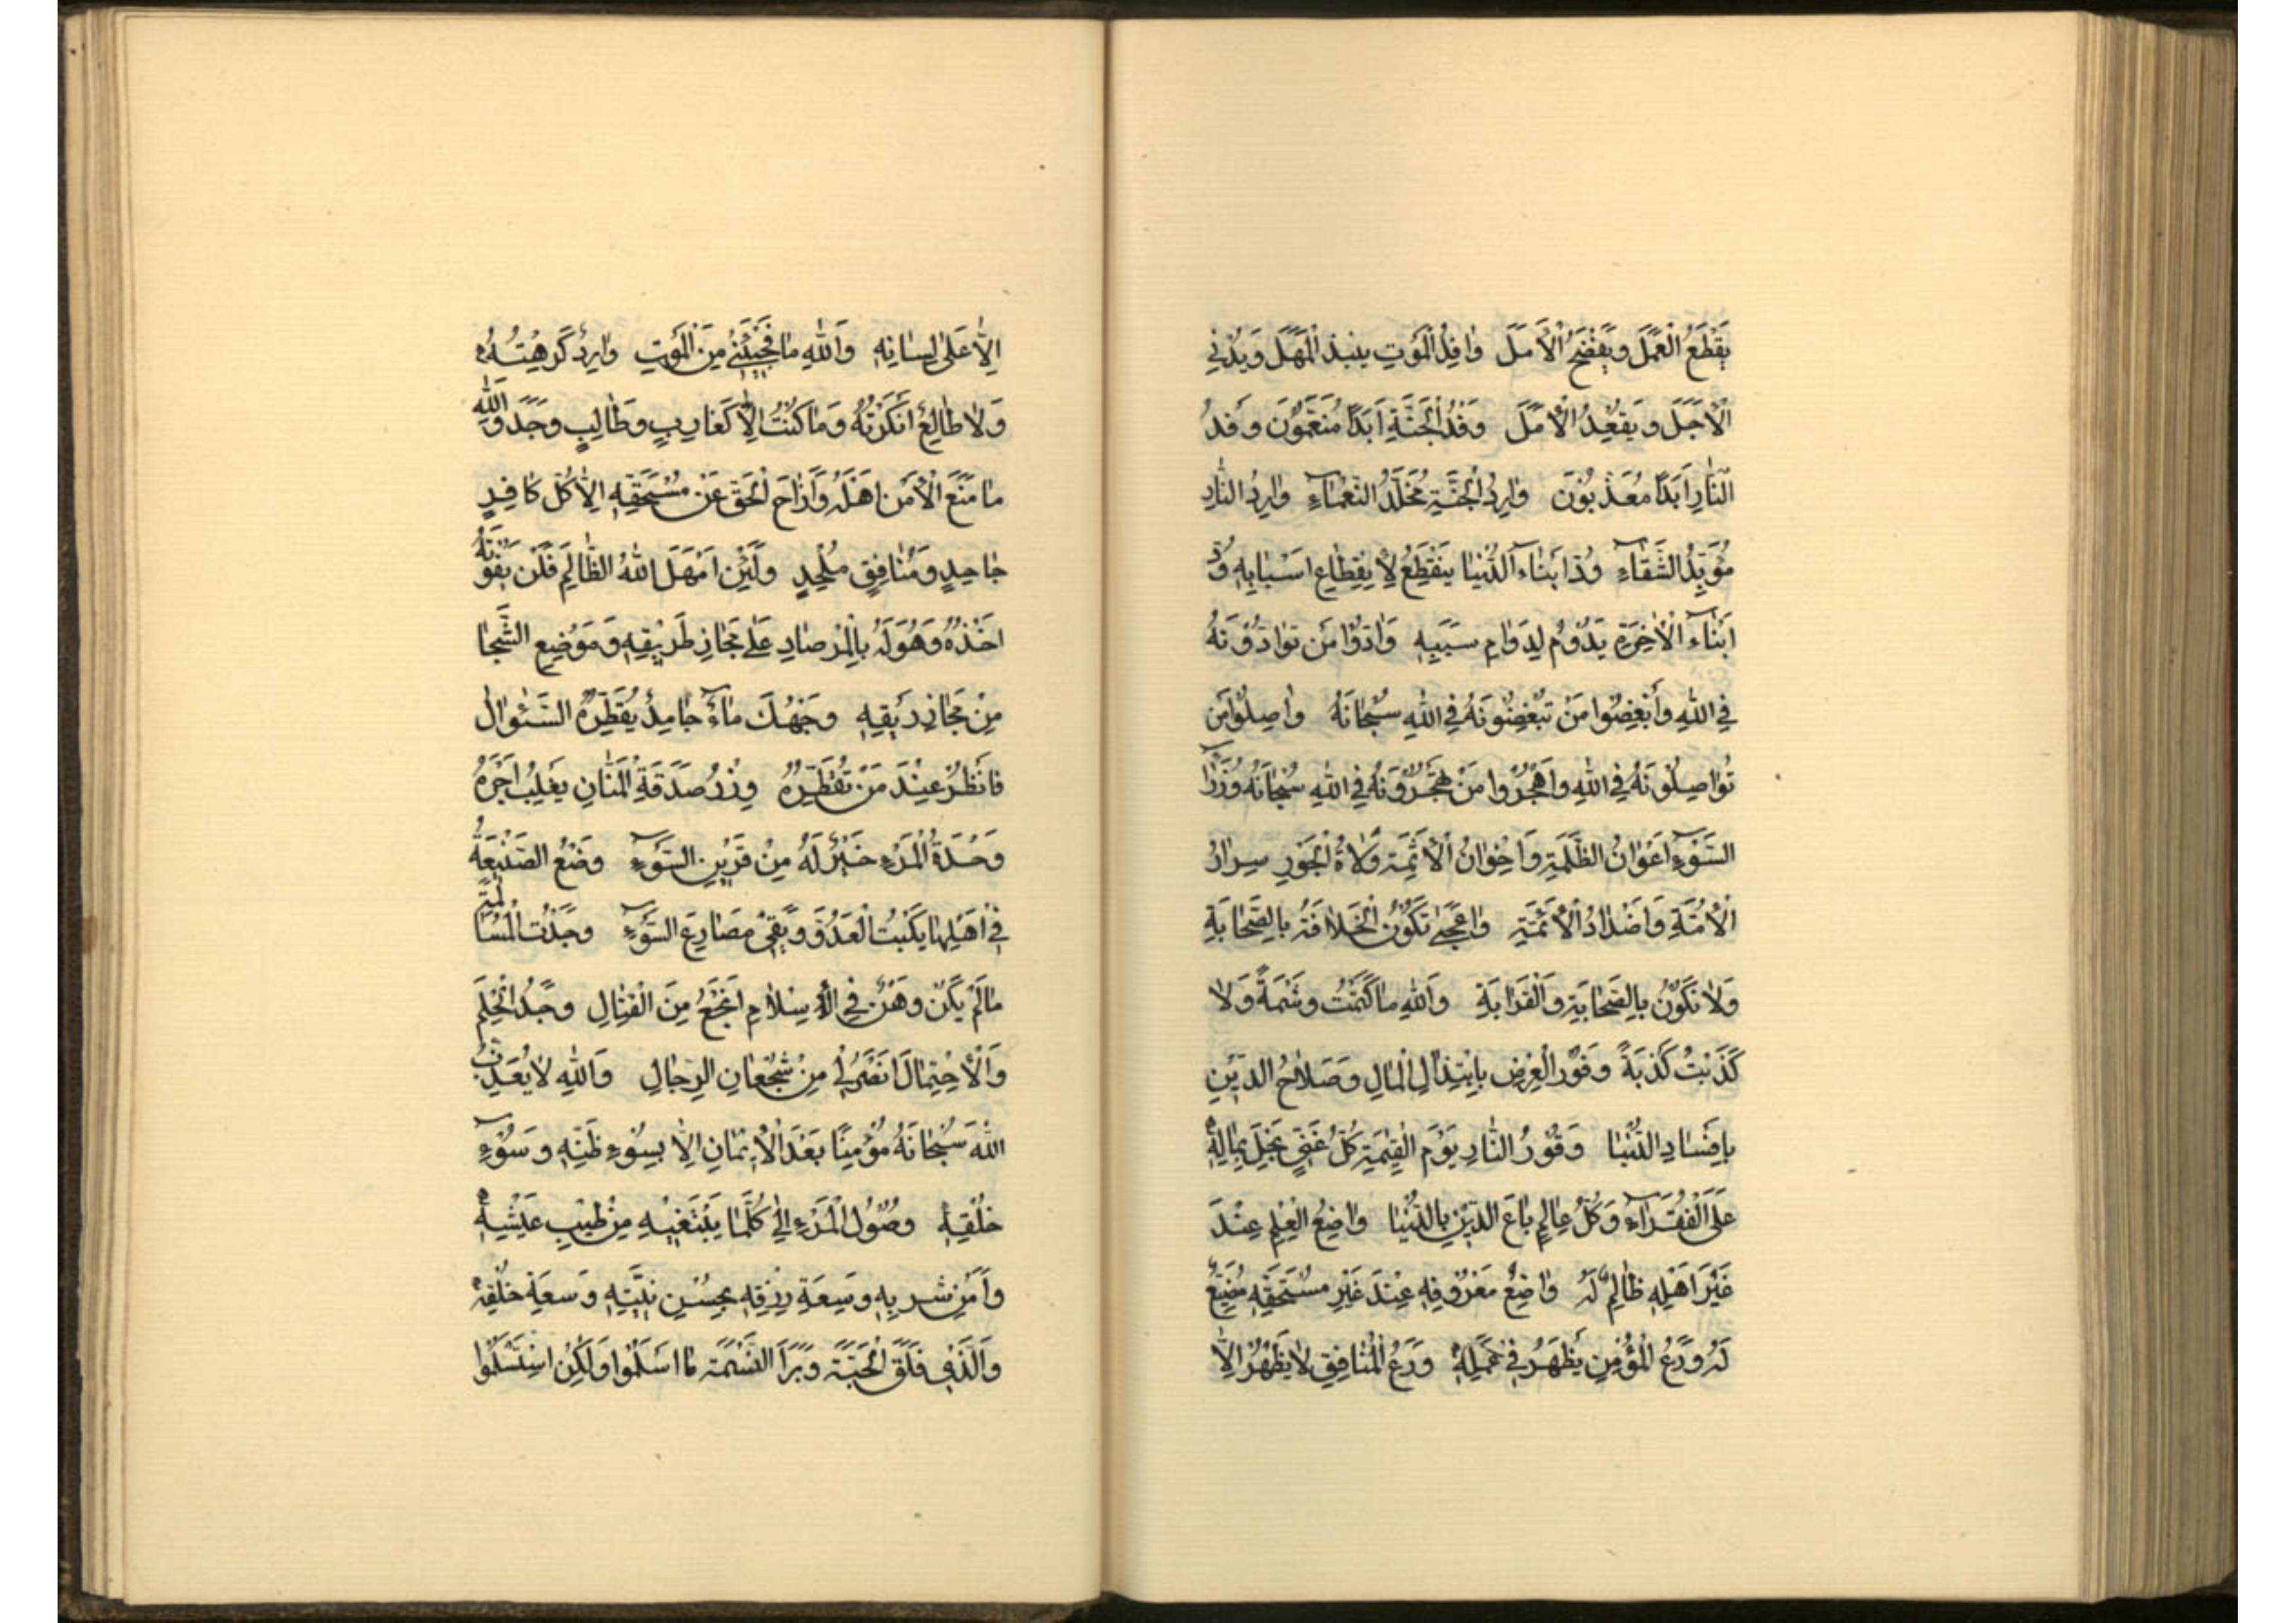 يَقْطَعُ الْعَمَلَ وَيَفْضَحُ الْأَمَلَ وَافِدُ الْمَوْتِ يبنذ الْمَهَلَ وَيُدْنِي
الْأَجَلَ وَيَقْعِدُ الْأَمَلَ وَفْدُ الْجَنَّةِ أَبَدًا مُنَعَّمُونَ وَفْدُ
النَّارِ أَبَدًا مُعَذَّبُونَ وَارِدُ الْجَنَّةِ مُخَلَّدُ النَّعْمَاءِ وَارِدُ النَّارِ
مُؤَبَّدُ الشَّقَاءِ وُدُّ أَبْنَاءِ الدُّنْيَا يَنْقَطِعُ لِانْقِطَاعِ أَسْبَابِهِ وُدُّ
أَبْنَاءِ الْآخِرَةِ يَدُومُ لِدَوَامِ سَبَبِهِ وَادُّوا مَنْ تُوَادُّونَهُ
فِي اللهِ وَأَبْغِضُوا مَنْ تُبْغِضُونَهُ فِي اللهِ سُبْحَانَهُ وَاصِلُوا مَنْ
تُوَاصِلُونَهُ فِي اللهِ وَاهْجُرُوا مَنْ تَهْجُرُونَهُ فِي اللهِ سُبْحَانَهُ وُزَرَاءُ
السَّوْءِ أَعْوَانُ الظَّلَمَةِ وَإِخْوَانُ الْأَثَمَةِ وُلَاةُ الْجَوْرِ سِرَارُ
الْأُمَّةِ وَأَضْدَادُ الْأَئِمَّةِ وَاعَجَبَى تَكُونُ الْخِلَافَةُ بِالصَّحَابَةِ
وَلَا تَكُونُ بِالصَّحَابَةِ وَالْقَرَابَةِ وَاللهِ مَا كَتَمْتُ وَشْمَةً وَلَا
كَذَبْتُ كَذِبَةً وُفُورُ الْعِرْضِ بِابْتِذَالِ الْمَالِ وَصَلَاحُ الدِّينِ
بِإِفْسَادِ الدُّنْيَا وَقُودُ النَّارِ يَوْمَ الْقِيمَةِ كُلُّ غَنِيٍّ بَخِلَ بِمَالِهِ
عَلَى الْفُقَرَاءِ وَكُلُّ عَالِمٍ بَاعَ الدِّينَ بِالدُّنْيَا وَاضِعُ الْعِلْمِ عِنْدَ
غَيْرِ أَهْلِهِ ظَالِمٌ لَهُ وَاضِعُ مَعْرُوفِهِ عِنْدَ غَيْرِ مُسْتَحِقِّهِ مُضَيِّعٌ
لَهُ وَرَعُ الْمُؤْمِنِ يَظْهَرُ فِي عَمَلِهِ وَرَعُ الْمُنَافِقِ لَا يَظْهَرُ إِلَّا
إِلَّا عَلَى لِسَانِهِ وَاللهِ مَا فَجِئَنِي مِنَ الْمَوْتِ وَارِدٌ كَرِهْتُهُ
وَلَا طَالِعٌ أَنْكَرْتُهُ وَمَا كُنْتُ إِلَّا كَغَارِبٍ وَطَالِبٍ وَجَدَ وَاللهِ
مَا مَنَعَ الْأَمْنَ أَهْلَهُ وَأَزَاحَ الْحَقَّ عَنْ مُسْتَحِقِّهِ إِلَّا كُلُّ كَافِرٍ
جَاحِدٍ وَمُنَافِقٍ مُلْحِدٍ وَلَئِنْ أَمْهَلَ اللهُ الظَّالِمَ فَلَنْ يَفُوتَهُ
أَخْذُهُ وَهُوَ لَهُ بِالْمِرْصَادِ عَلَى مَجَازِ طَرِيقِهِ وَمَوْضِعِ الشَّجَا
مِنْ مَجَازِ رِيقِهِ وَجْهُكَ مَاءٌ جَامِدٌ يُقَطِّرُهُ السُّؤَالُ
فَانْظُرْ عِنْدَ مَنْ تُقَطِّرُهُ وِزْرُ صَدَقَةِ الْمَنَّانِ يَغْلِبُ أَجْرَهُ
وَحْدَةُ الْمَرْءِ خَيْرٌ لَهُ مِنْ قَرِينِ السَّوْءِ وَضْعُ الصَّنِيعَةِ
فِي أَهْلِهَا يَكْبِتُ الْعَدُوَّ وَيَقِي مَصَارِعَ السَّوْءِ وَجَدْتُ الْمُسَالَمَةَ
مَا لَمْ يَكُنْ وَهْنٌ فِي الْإِسْلَامِ أَنْجَعَ مِنَ الْقِتَالِ وَجَدْتُ الْحِلْمَ
وَالْاِحْتِمَالَ أَنْصَرَ لِي مِنْ شُجْعَانِ الرِّجَالِ وَاللهِ لَا يُعَذِّبُ
اللهُ سُبْحَانَهُ مُؤْمِنًا بَعْدَ الْإِيمَانِ إِلَّا بِسُوءِ ظَنِّهِ وَسُوءِ
خُلْقِهِ وُصُولُ الْمَرْءِ إِلَى كُلَّمَا يَبْتَغِيهِ مِنْ طِيبِ عَيْشِهِ
وَأَمْنِ سِرْبِهِ وَسَعَةِ رِزْقِهِ بِحُسْنِ نِيَّتِهِ وَسَعَةِ خُلْقِهِ
وَالَّذِي فَلَقَ الْحَبَّةَ وَبَرَأَ النَّسَمَةَ مَا أَسْلَمُوا وَلَكِنِ اسْتَسْلَمُوا